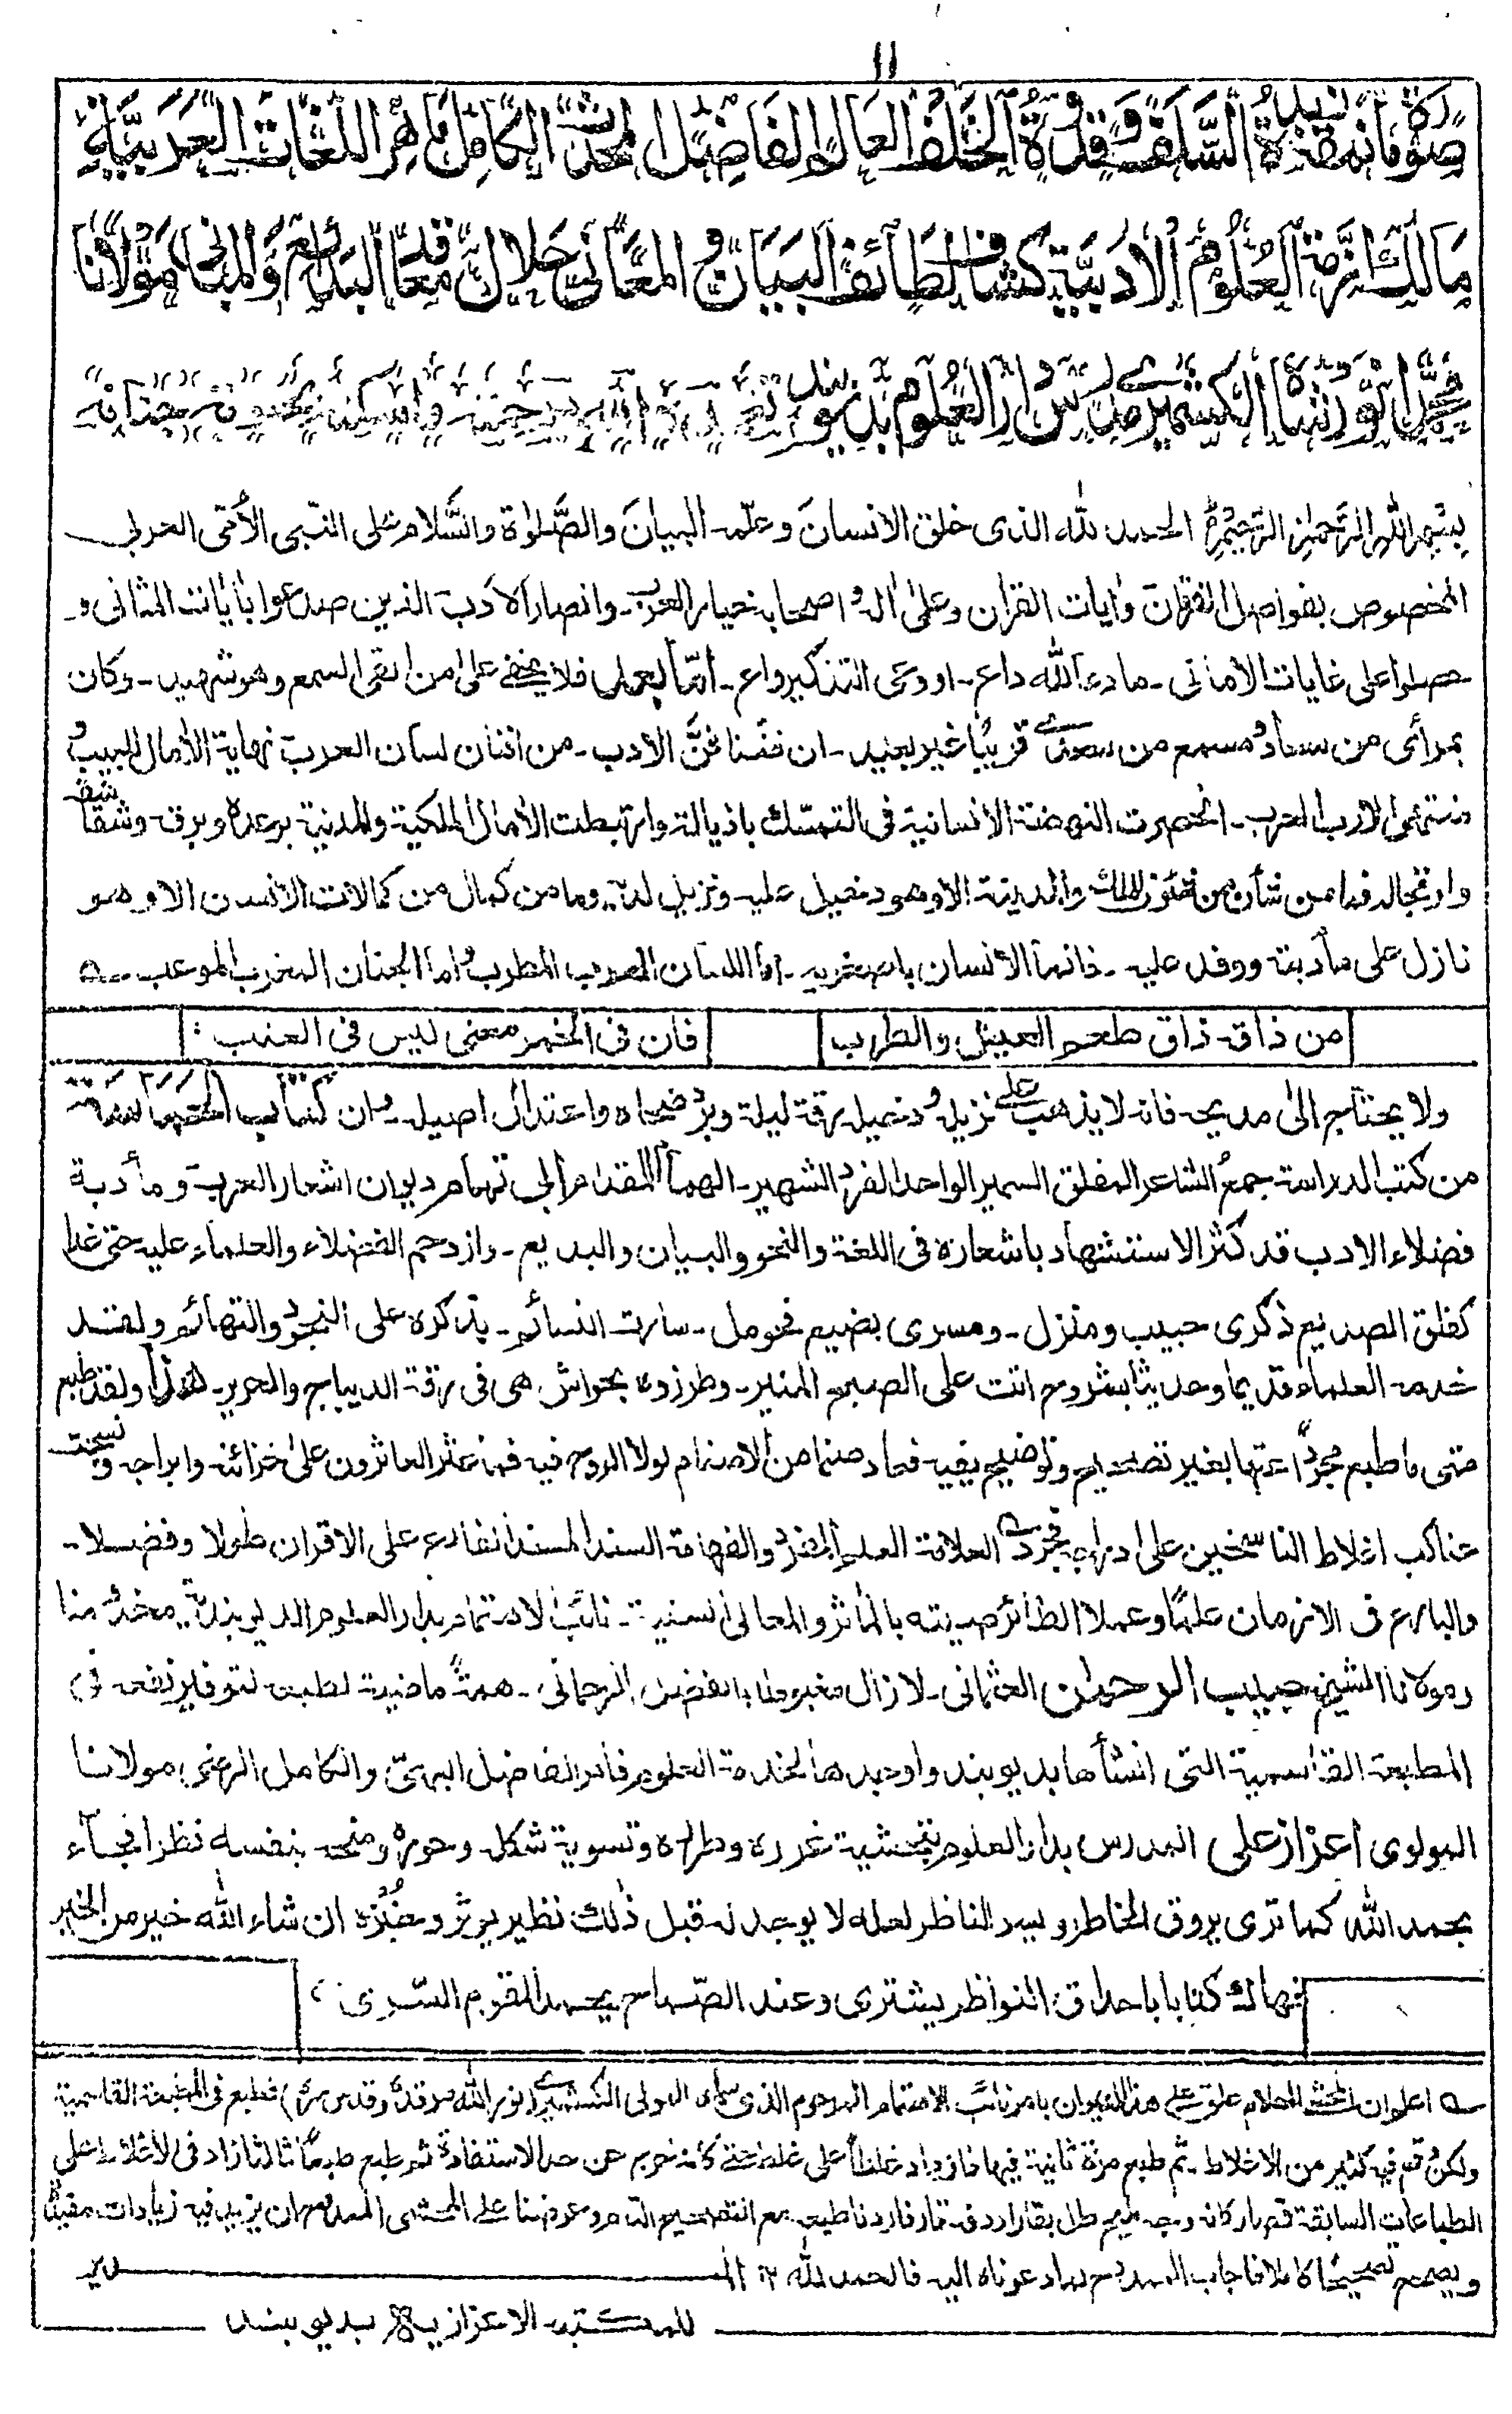 ١١
صورة ما نمقته السلف وقدوة الخلف العالم الفاضل المحدث الكامل ماهر اللغات العربية
مالك ازمة العلوم الادبية كشاف لطائف البيان والمعاني حلال معاقد البدائع والمباني مولانا
محمد انور شاه الكشميري صدر المدرسين بدار العلوم بديوبند تغمده الله برحمته واسكنه بحبوحة جنانه
بسم الله الرحمن الرحيم الحمد لله الذى خلق الانسان وعلمه البيان والصلوٰة والسلام على النبى الأمى العربى
المخصوص بفواصل الفرقان واٰيات القراٰن وعلى اٰله واصحابه خيار العرب۔ وانصار الادب الذين صدعوا باٰيات المثانى و۔
حصلوا على غايات الأمانى۔ ما دعا لله داع۔ او وعى التذكير واع۔ امّا بعد فلا يخفى على من القى السمع وهو شهيد۔ وكان
بمرأى من سعاد ومسمع من سعدى قريبًا غير بعيد۔ ان فننا فنّ الادب۔ من افنان لسان العرب نهاية الاٰمال للبيب و
منتهى الارب۔ انحصرت النهضة الانسانية فى التمسك باذياله وارتبطت الاٰمال الملكية والمدنية برعده وبرقه وشقاشقه
وارتجاله فما من شأن من شئون الملك والمدينة الا وهو دخيل عليه۔ ونزيل لديه وما من كمال من كمالات الانسان الا وهو
نازل على مأدبته ووفد عليه۔ فانما الانسان باصغريه۔ اما اللسان المعرب المطرب واما الجنان المغرب الموعب۔ ہ
من ذاقه ذاق طعم العيش والطرب فان فى الخمر معنى ليس فى العنب ؛
ولا يحتاج الى مديح فانه لا يذهب على نزيل ودخيل رقة ليله وبرد ضحاه واعتدال اصيل۔ وان كتاب الحماسة
من كتب الدراسة جمع الشاعر المفلق السمير الواحد الفرد الشهير۔ الهمام المقدام أبى تمام ديوان اشعار العرب ومأدبة
فضلاء الادب قد كثر الاستشهاد باشعاره فى اللغة والنحو والبيان والبديع۔ وازدحم الفضلاء والعلماء عليه حتى غدا
كفلق الصديع ذكرى حبيب ومنزل۔ ومسرى بضيع فحومل۔ سارت النسائم۔ بذكره على النجود والتهائم ولقد
خدمه العلماء قديما وحديثا بشروح انت على الصبح المنير۔ وطرزوه بحواش هى فى رقة الديباج والحرير۔ هٰذا ولقد طبع
متى ما طبع مجردًا عنها بغير تصحيح وتوضيح يفيه فعاد صنما من الاصنام لولا الروح فيه فما عثر العاثرون على خزائنه وابراجه ونسجت
عناكب اغلاط الناسخين على ادراجه فتجرد العلامة العلم المفرد والفهامة السند المسند الفارع على الاقران طولا وفضلا۔
والبارع فى الازمان علمًا وعملا الطائر صيته بالمآثر والمعالى السنية۔ نائب الاهتمام بدار العلوم الديوبندية مخدومنا
ومولانا الشيخ حبيب الرحمٰن العثمانى۔ لا زال مغمورا بالفضل الرحمانى۔ همةً ماضية لطبعه لتوفير نفعه فى
المطبعة القاسمية التى انشأها بديوبند واوجدها لخدمة العلوم فأمر الفاضل البهىّ والكامل الرضىّ مولانا
المولوى اعزاز على المدرس بدار العلوم بتحشية غرره وطرره وتسوية شكله وحوره ومنحه بنفسه نظرا فجاء
بحمد الله كما ترى يروق الخاطر ويسر الناظر لعله لا يوجد له قبل ذٰلك نظير يؤثر وخُبْره ان شاء الله خير من الخبر
فهاك كتابا باحداق النواظر يشترى وعند الصباح يحمد القوم السّرى ؛
اعلم ان المحشى العلام علق على هذا الديوان بامر نائب الاهتمام المرحوم الذى سماه المولى الكشميرى (نور الله مرقده وقدس سره) فطبع فى المطبعة القاسمية
ولكن وقع فيه كثير من الاغلاط۔ ثم طبع مرة ثانية فيها فازداد غلطًا على غلط حتى كأنه خرج عن حد الاستفادة ثم طبع طبعًا ثالثا زاد فى الأغلاط على
الطباعات السابقة
ويصحح تصحيحًا كاملا فاجاب الممدوح لما دعوناه اليه فالحمد لله ١٢ المدير
للمكتبة الاعزازية بديوبند